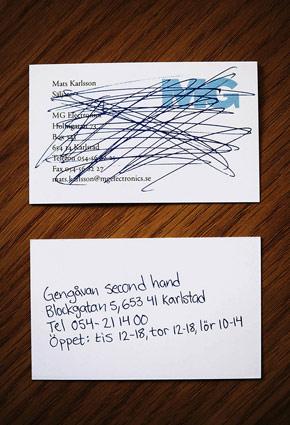 Mats Karlsson
Säljare
MG
MG Electronics
Holmgatan
Box
654 Karlstad
Telefon 054-
Fax 054- 27
mats.karlsson@mgelectronics.se
Gengåvan second hand
Blockgatan 5, 653 41 Karlstad
Tel 054-21 14 00
Öppet: tis 12-18, tor 12-18, lör 10-14